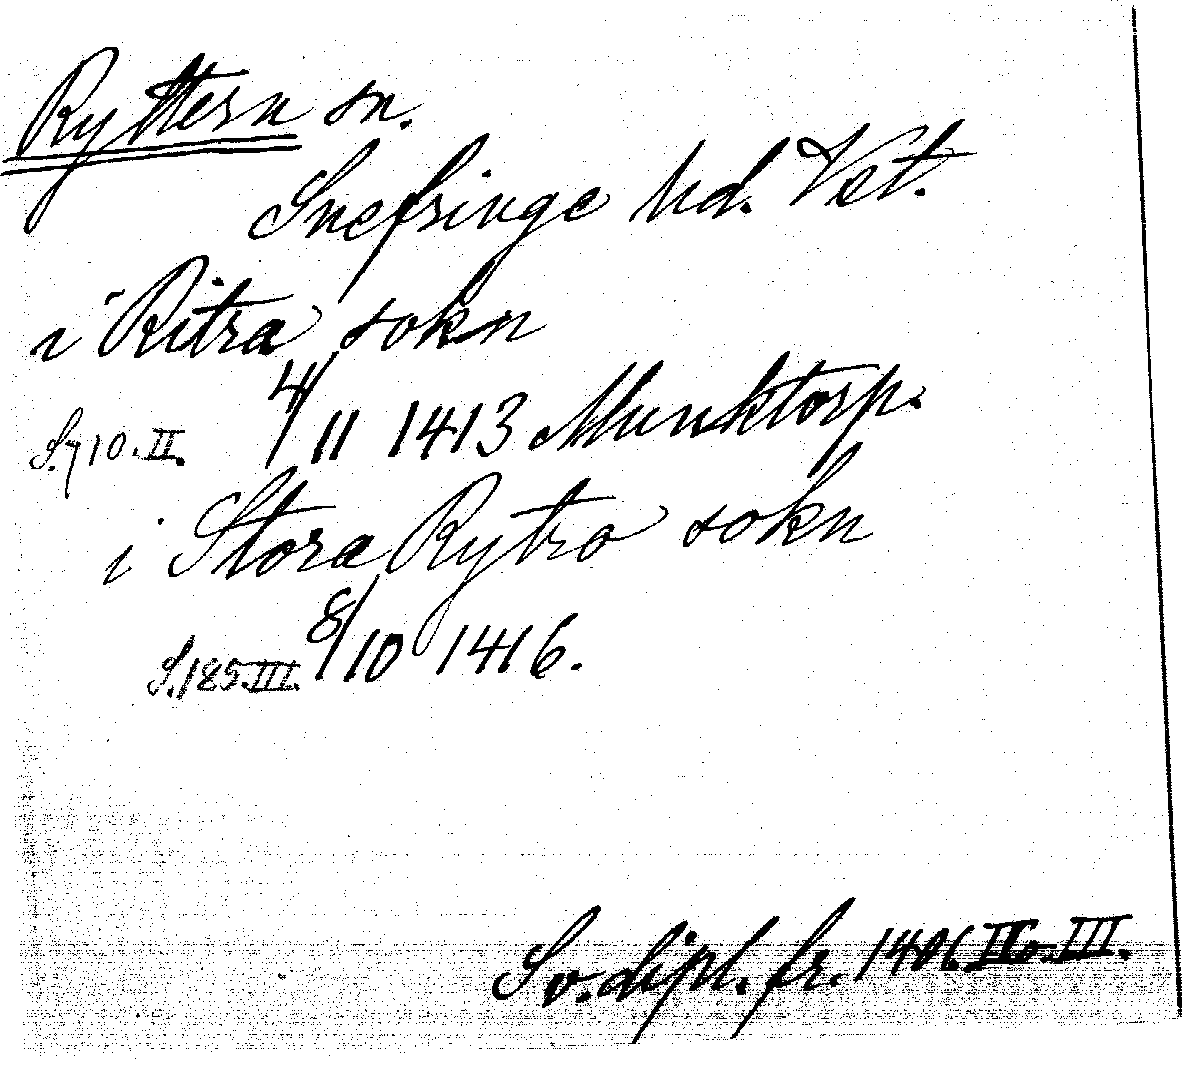 Ryttern sn.
Snefringe hd. Vst.
i Ritra sokn
S. 710. II. 4/11 1413 Munktorp.
i Stora Rytro sokn
S. 185. III. 8/10 1416.
Sv. dipl. fr. 1401. II o. III.